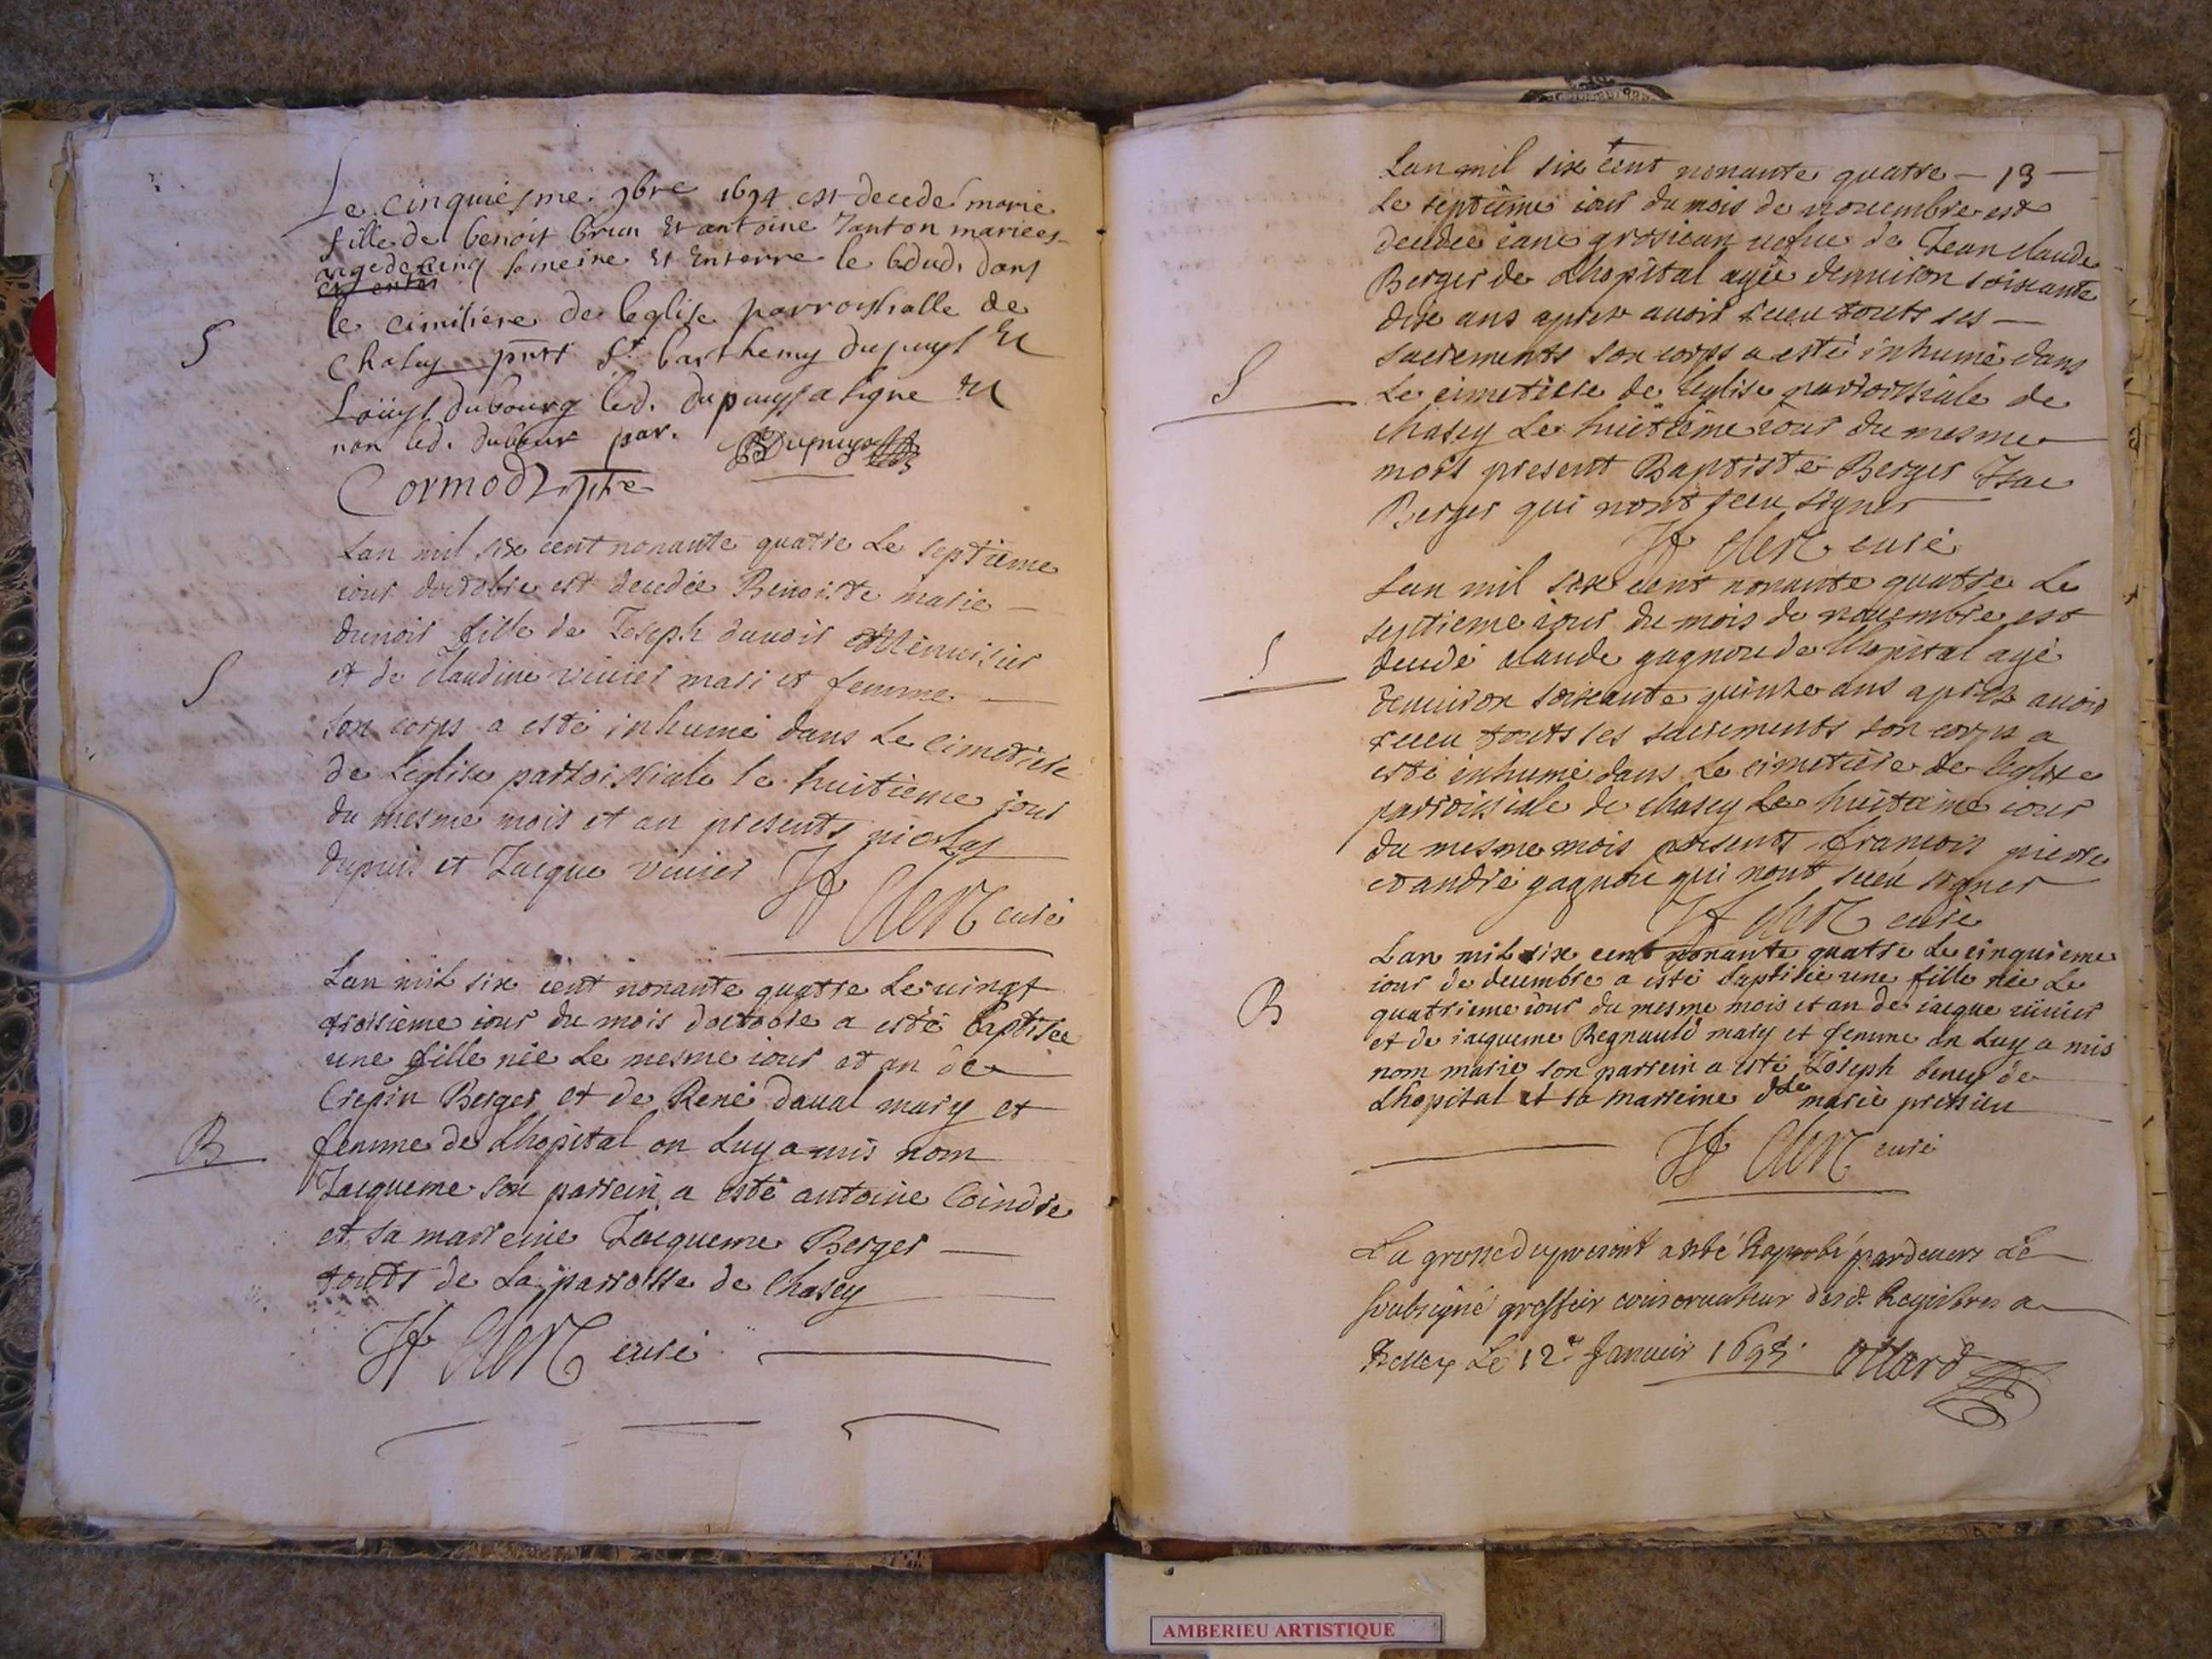 Le cinquiesme 9bre 1694 est decedé marie
fille de benoit brun Et antoine Tanton mariees
aigede cinq semeine Et Enterre le 6dud. dans
le cimitiere de leglise parroissialle de
Chasey pnt Sr barthemy dupuys Et
Loüys dubourg led. dupuys a signe Et
non led. dubour par.
Dupuys
Cormod ptre
S
Lan mil six cent nonante quatre Le septieme
iour doctobre est decedée Benoiste marie
dunoir fille de Joseph dunoir Menuisier
et de Claudine viuier mari et femme
son corps a esté inhumé dans Le cimetiere
de Leglise parroissiale le huitieme iour
du mesme mois et an presents nicolas
dupuis et Jacque viuier
Clerc curé
S
Lan mil six cent nonante quatre Le vingt
troisieme iour du mois doctobre a esté baptisee
une fille née Le mesme iour et an de
Crepin Berger et de René daual mary et
femme de Lhopital on Luy a mis nom
Jacqueme son parrein a esté antoine Coindre
et sa marreine Jacqueme Berger
touts de La parroisse de Chasey
Clerc curé
B
Lan mil six cent nonante quatre — 13 —
Le septieme iour du mois de nouembre est
decedee iane grosiean uefue de Jean Claude
Berger de Lhopital agée denuiron soixante
dix ans apres auoir receu touts ses
sacrements son corps a esté inhumé dans
Le cimetiere de Leglise parroissiale de
chasey Le huitieme iour du mesme
mois present Baptiste Berger Isac
Berger qui nont sceu signer
Clerc curé
S
Lan mil six cent nonante quatre Le
septieme iour du mois de nouembre est
decedé claude gagnou de Lhopital agé
denuiron soixante quinze ans apres auoir
receu touts ses sacrements son corps a
esté inhumé dans Le cimetiere de leglise
parroissiale de chasey Le huitieme iour
du mesme mois presents francois pierre
et andré gagnou qui nont sceu signer
Clerc curé
S
Lan mil six cent nonante quatre Le cinquieme
iour de decembre a esté baptisée une fille née Le
quatrieme iour du mesme mois et an de iacque uiuier
et de iacqueme Regnauld mary et femme on Luy a mis
nom marie son parrein a esté Joseph beney de
Lhopital et sa marreine dlle marie pressieu
Clerc curé
B
La grosse du present a esté Raporté pardeuers Le
soubsigné greffier conseruateur desd. Registres a
Belley Le 12e Januier 1695. Ollard
AMBERIEU ARTISTIQUE